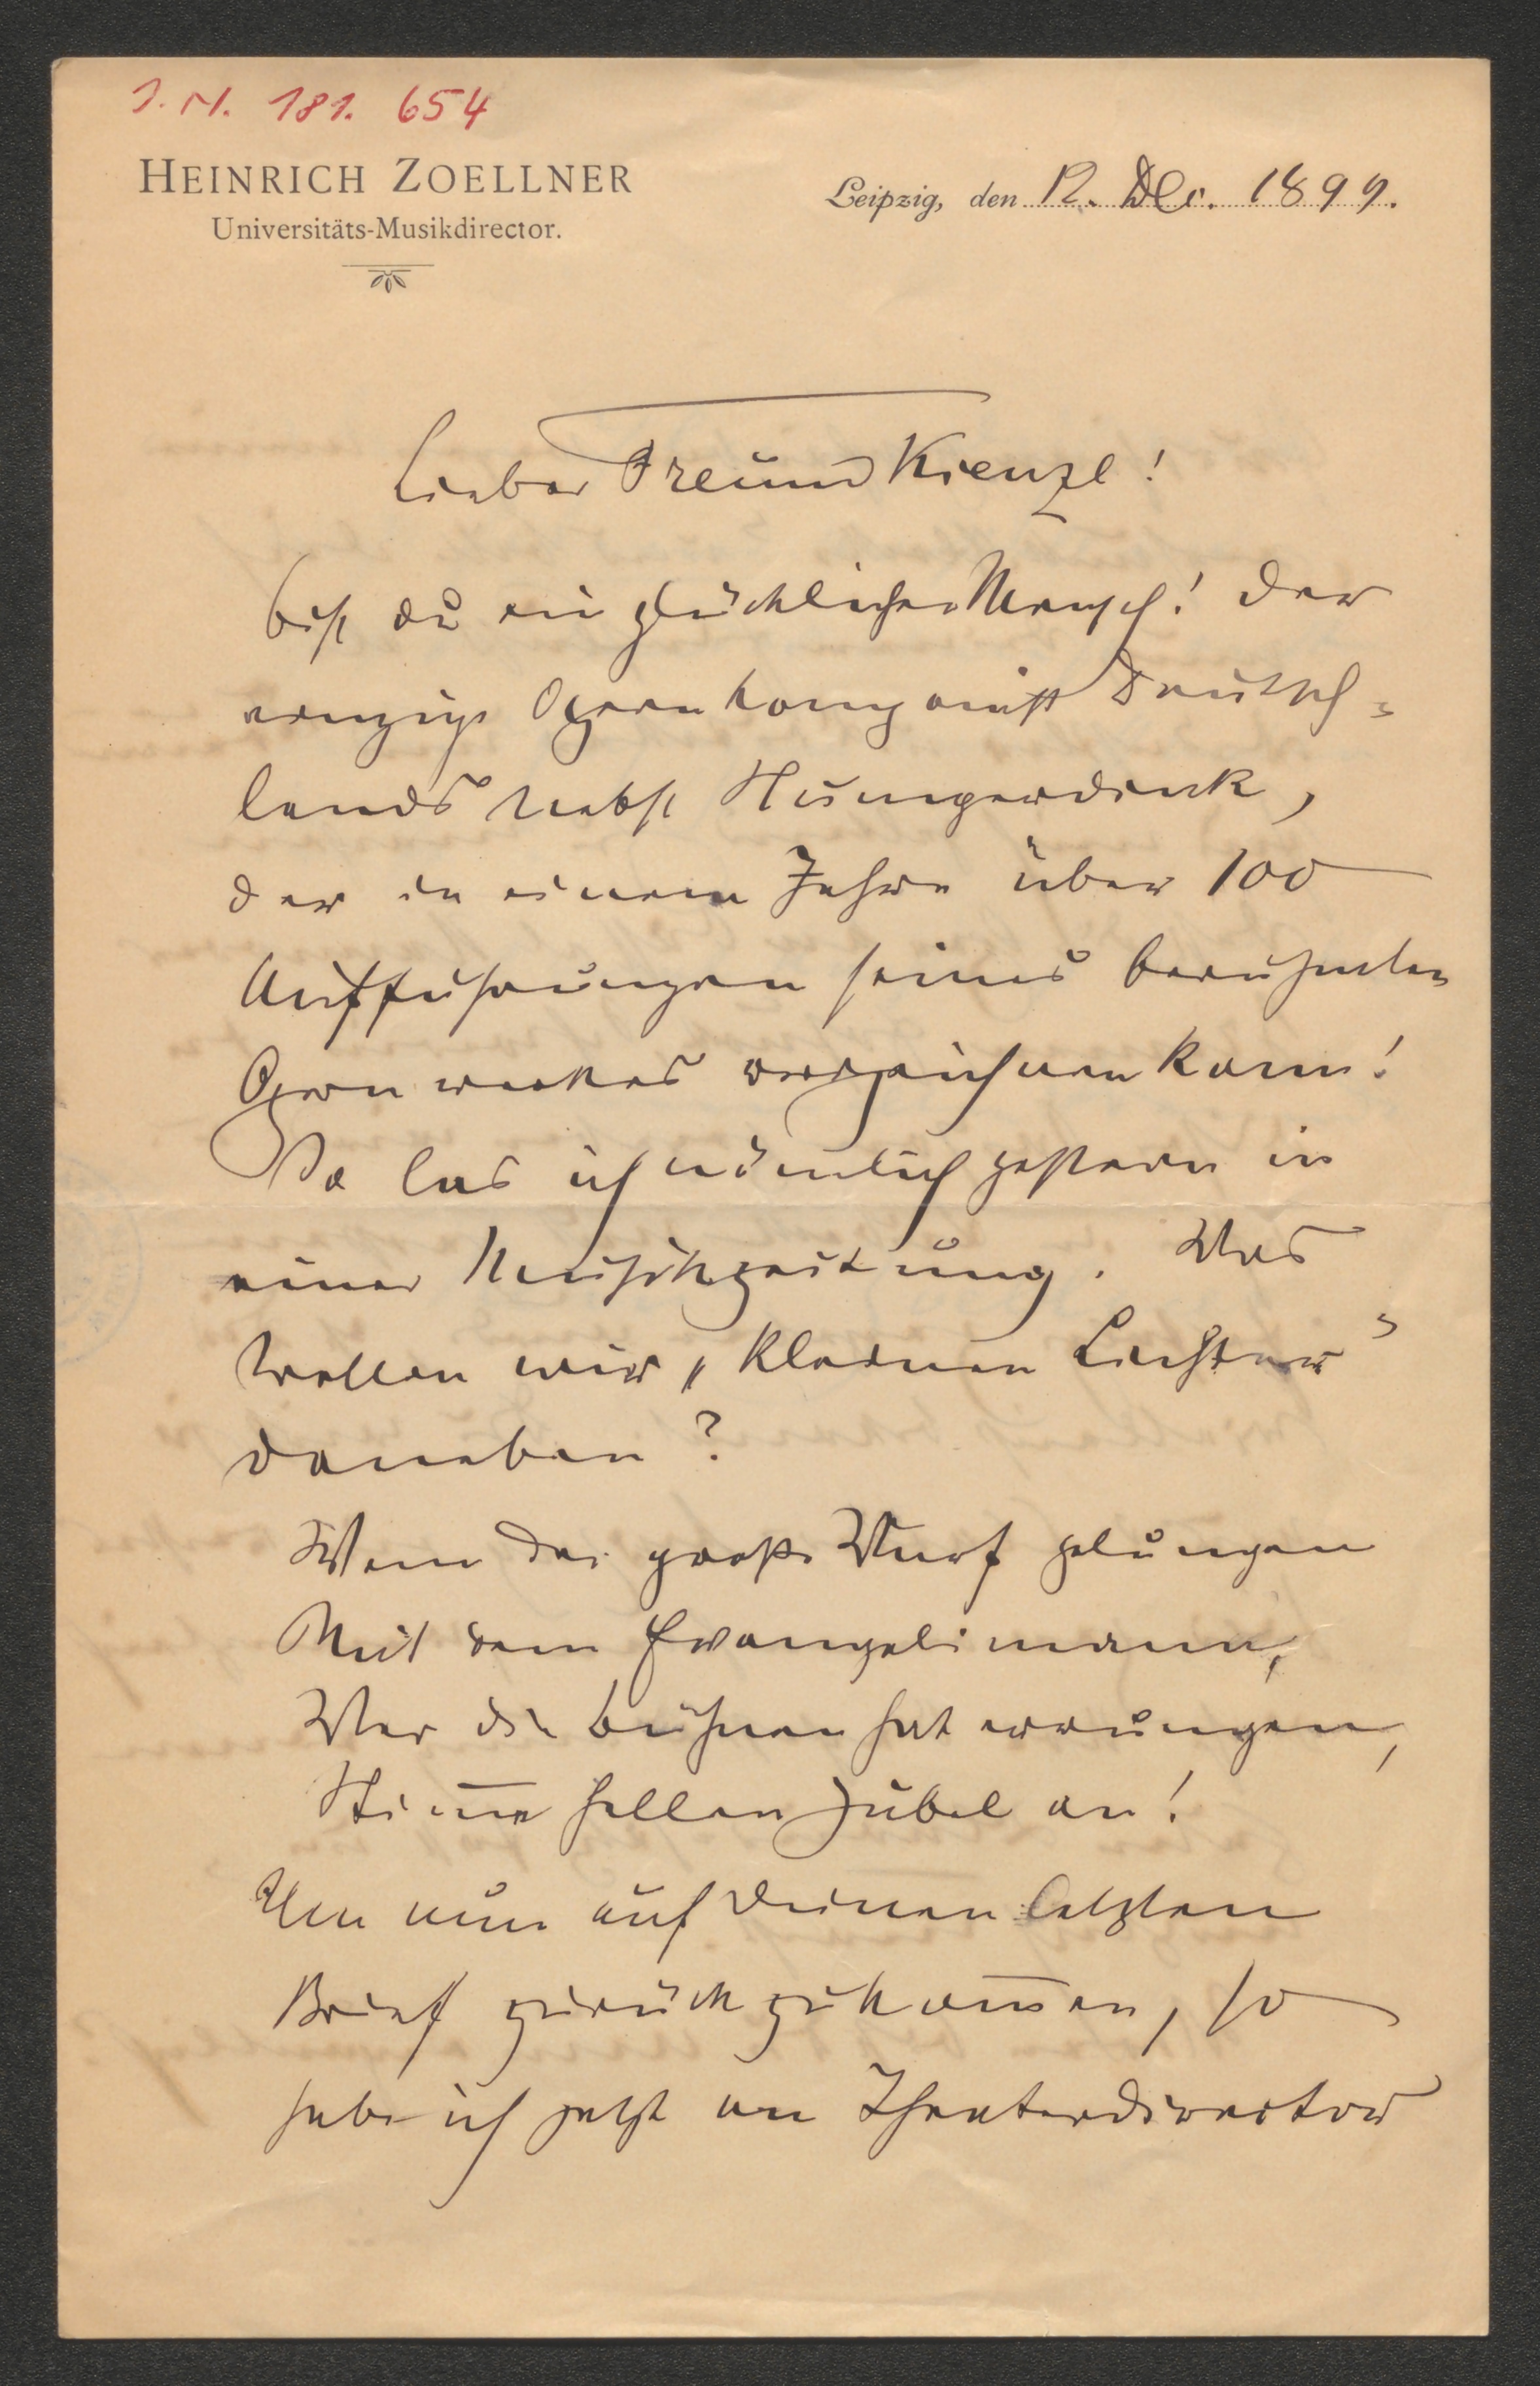 I. N. 181.654
HEINRICH ZOELLNER
Universitäts-Musikdirector.
Leipzig, den 12. Dec. 1899.
Lieber Freund Kienzl!
bist du ein glücklicher Mensch! Der
einzige Opernkomponist Deutsch-
lands nebst Humperdinck,
der in einem Jahre über 100
Aufführungen seines berühmten
Opernwerkes verzeichnen kann!
So las ich nämlich gestern in
einer Musikzeitung. Was
wollen wir „kleinen Lichter"
daneben?
Wem der große Wurf gelungen
Mit dem Evangelimann,
Wer die Bühnen hat errungen,
Stimme hellen Jubel an!
Um nun auf Deinen letzten
Brief zurückzukommen, so
habe ich jetzt an Theaterdirector